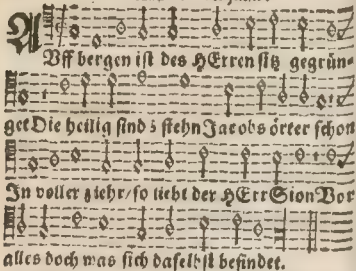 AUff bergen ist des HErren sitz gegrün-
get Die heilig sind / stehn Jacobs örter schon
In voller ziehr / so liebt der HErr Sion Vor
alles doch was sich daselbst befindet.